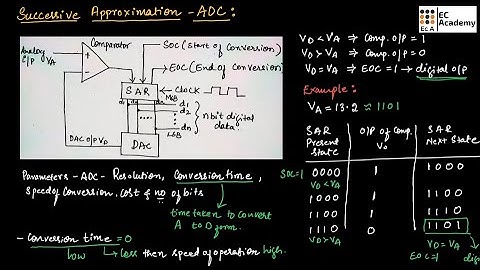 Successive Approximation - ADC :
EC
Academy
EC A
Analog
i/p VA
Comparator
SOC (Start of Conversion)
EOC (End of Conversion)
SAR
CLOCK
MSB
d1
d2
dn
LSB
n bit digital
data
DAC O/P VD
DAC
VD < VA ⇒ Comp. O/P = 1
VD > VA ⇒ Comp. O/P = 0
VD = VA ⇒ EOC = 1 → digital O/P
Example :
VA = 13.2 ≈ 1101
SAR Present State
O/P of Comp. Vo
SAR Next State
SOC=1 0000 1 1000
VD < VA
1000 1 1100
1100 1 1110
1110 0 1101
VD > VA
VD = VA
EOC=1
Parameters - ADC - Resolution, Conversion time,
speed of conversion, cost & no of bits
time taken to convert
A to D form.
- Conversion time = 0
low → less then speed of operation high.